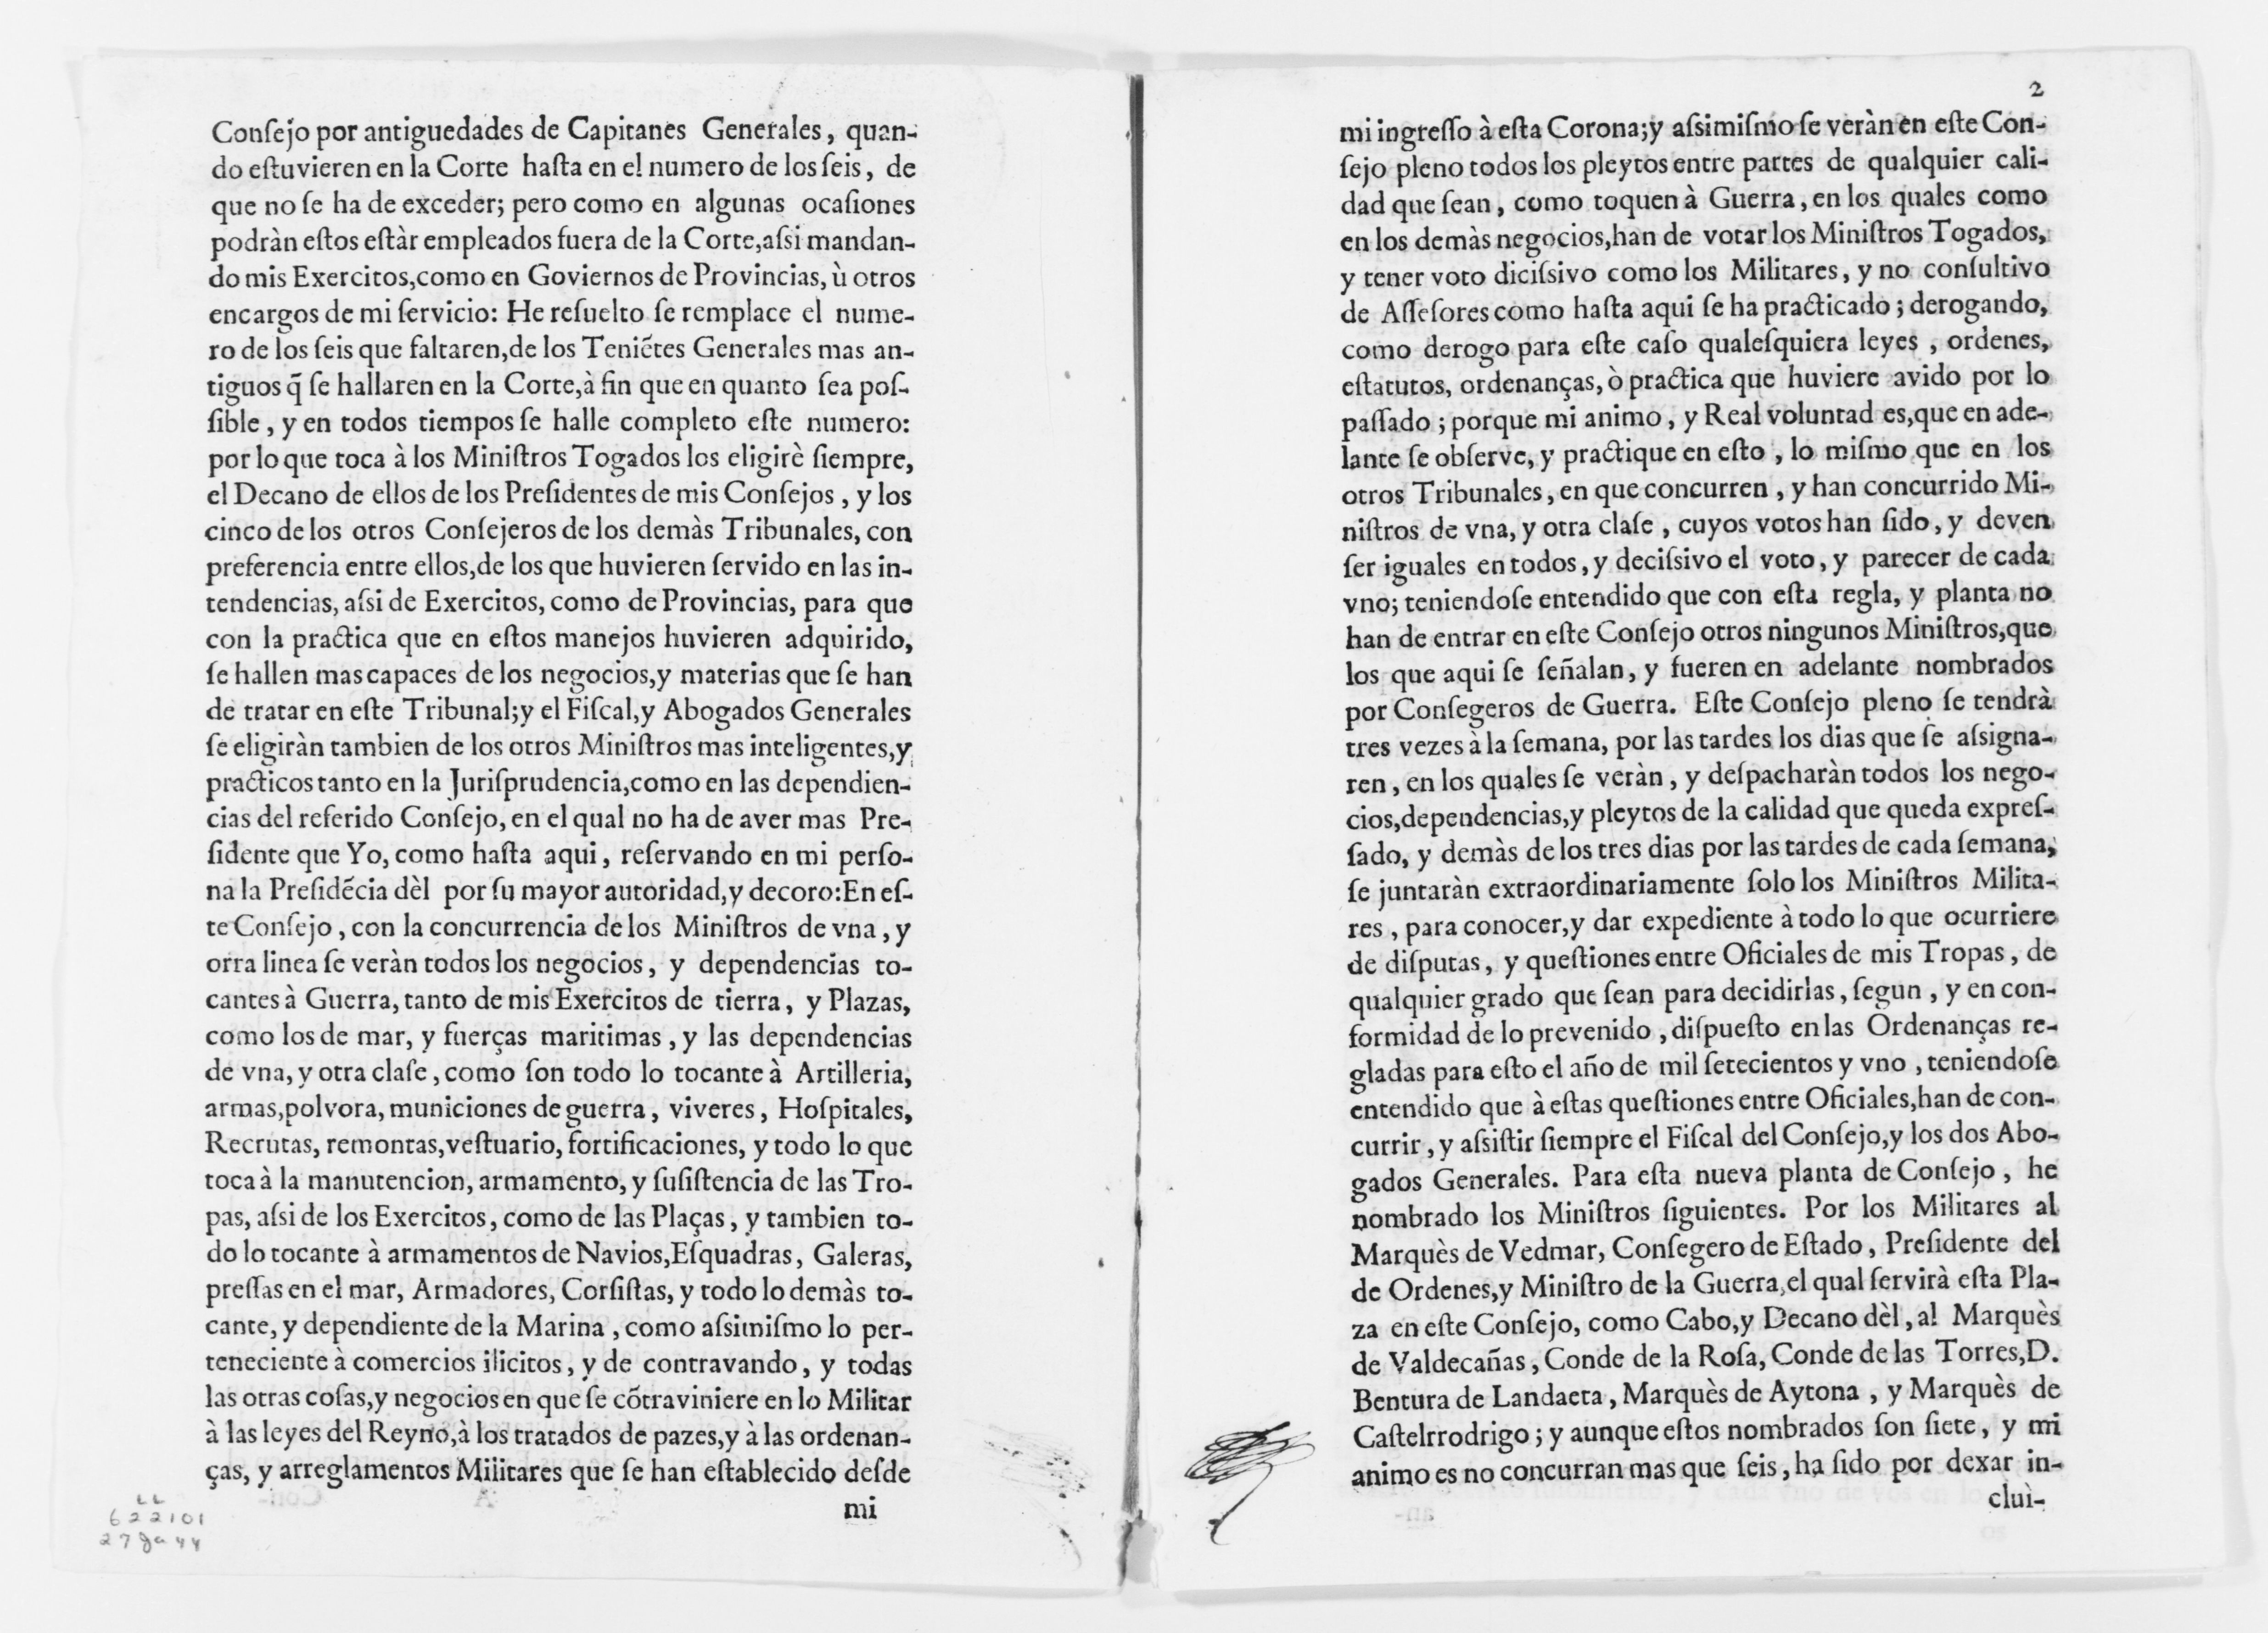 Conſejo por antiguedades de Capitanes Generales, quan-
do eſtuvieren en la Corte haſta en el numero de los ſeis, de
que no ſe ha de exceder; pero como en algunas ocaſiones
podràn eſtos eſtàr empleados fuera de la Corte,aſsi mandan-
do mis Exercitos,como en Goviernos de Provincias, ù otros
encargos de mi ſervicio: He reſuelto ſe remplace el nume-
ro de los ſeis que faltaren,de los Teniẽtes Generales mas an-
tiguos q̃ ſe hallaren en la Corte,à fin que en quanto ſea poſ-
ſible, y en todos tiempos ſe halle completo eſte numero:
por lo que toca à los Miniſtros Togados los eligirè ſiempre,
el Decano de ellos de los Preſidentes de mis Conſejos, y los
cinco de los otros Conſejeros de los demàs Tribunales, con
preferencia entre ellos,de los que huvieren ſervido en las in-
tendencias, aſsi de Exercitos, como de Provincias, para que
con la practica que en eſtos manejos huvieren adquirido,
ſe hallen mas capaces de los negocios,y materias que ſe han
de tratar en eſte Tribunal;y el Fiſcal,y Abogados Generales
ſe eligiràn tambien de los otros Miniſtros mas inteligentes,y
practicos tanto en la Juriſprudencia,como en las dependien-
cias del referido Conſejo, en el qual no ha de aver mas Pre-
ſidente que Yo, como haſta aqui, reſervando en mi perſo-
na la Preſidẽcia dèl por ſu mayor autoridad,y decoro:En eſ-
te Conſejo, con la concurrencia de los Miniſtros de vna, y
orra linea ſe veràn todos los negocios, y dependencias to-
cantes à Guerra, tanto de mis Exercitos de tierra, y Plazas,
como los de mar, y fuerças maritimas, y las dependencias
de vna, y otra claſe, como ſon todo lo tocante à Artilleria,
armas,polvora, municiones de guerra, viveres, Hoſpitales,
Recrutas, remontas,veſtuario, fortificaciones, y todo lo que
toca à la manutencion, armamento, y ſuſiſtencia de las Tro-
pas, aſsi de los Exercitos, como de las Plaças, y tambien to-
do lo tocante à armamentos de Navios,Eſquadras, Galeras,
preſſas en el mar, Armadores, Corſiſtas, y todo lo demàs to-
cante, y dependiente de la Marina, como aſsimiſmo lo per-
teneciente à comercios ilicitos, y de contravando, y todas
las otras coſas,y negocios en que ſe cõtraviniere en lo Militar
à las leyes del Reyno,à los tratados de pazes,y à las ordenan-
ças, y arreglamentos Militares que ſe han eſtablecido deſde
mi
LL
622101
27 Ja 44
2
mi ingreſſo à eſta Corona;y aſsimiſmo ſe veràn en eſte Con-
ſejo pleno todos los pleytos entre partes de qualquier cali-
dad que ſean, como toquen à Guerra, en los quales como
en los demàs negocios,han de votar los Miniſtros Togados,
y tener voto diciſsivo como los Militares, y no conſultivo
de Aſſeſores como haſta aqui ſe ha practicado; derogando,
como derogo para eſte caſo qualeſquiera leyes, ordenes,
eſtatutos, ordenanças, ò practica que huviere avido por lo
paſſado; porque mi animo, y Real voluntad es,que en ade-
lante ſe obſerve, y practique en eſto, lo miſmo que en los
otros Tribunales, en que concurren, y han concurrido Mi-
niſtros de vna, y otra claſe, cuyos votos han ſido, y deven
ſer iguales en todos, y deciſsivo el voto, y parecer de cada
vno; teniendoſe entendido que con eſta regla, y planta no
han de entrar en eſte Conſejo otros ningunos Miniſtros,que
los que aqui ſe ſeñalan, y fueren en adelante nombrados
por Conſegeros de Guerra. Eſte Conſejo pleno ſe tendrà
tres vezes à la ſemana, por las tardes los dias que ſe aſsigna-
ren, en los quales ſe veràn, y deſpacharàn todos los nego-
cios,dependencias,y pleytos de la calidad que queda expreſ-
ſado, y demàs de los tres dias por las tardes de cada ſemana,
ſe juntaràn extraordinariamente ſolo los Miniſtros Milita-
res, para conocer,y dar expediente à todo lo que ocurriere
de diſputas, y queſtiones entre Oficiales de mis Tropas, de
qualquier grado que ſean para decidirlas, ſegun, y en con-
formidad de lo prevenido, diſpueſto en las Ordenanças re-
gladas para eſto el año de mil ſetecientos y vno, teniendoſe
entendido que à eſtas queſtiones entre Oficiales,han de con-
currir, y aſsiſtir ſiempre el Fiſcal del Conſejo,y los dos Abo-
gados Generales. Para eſta nueva planta de Conſejo, he
nombrado los Miniſtros ſiguientes. Por los Militares al
Marquès de Vedmar, Conſegero de Eſtado, Preſidente del
de Ordenes,y Miniſtro de la Guerra,el qual ſervirà eſta Pla-
za en eſte Conſejo, como Cabo,y Decano dèl, al Marquès
de Valdecañas, Conde de la Roſa, Conde de las Torres,D.
Bentura de Landaeta, Marquès de Aytona, y Marquès de
Caſtelrrodrigo; y aunque eſtos nombrados ſon ſiete, y mi
animo es no concurran mas que ſeis, ha ſido por dexar in-
clui-